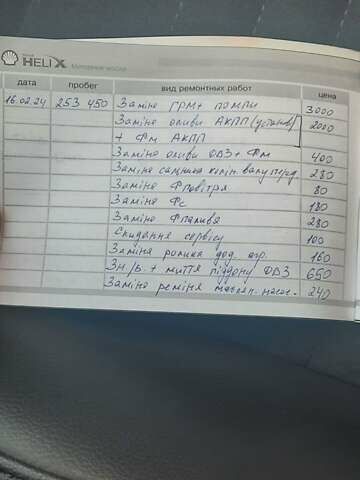 Shell
HELIX
Моторные масла
дата пробег вид ремонтных работ цена
16.02.24 253 450 Заміна ГРМ + помпи 3000
Заміна оливи АКПП (установ) 2000
+ Фм АКПП
Заміна оливи ДВЗ + Фм 400
Заміна сацника колін. валу перед. 280
Заміна Фповітря 80
Заміна Фс 180
Заміна Фпалива 280
Скидання сервісу 100
Заміна ролика дод. агр. 160
Зн./в. + миття піддону ДВЗ 650
Заміна реміня маслян. насос. 240